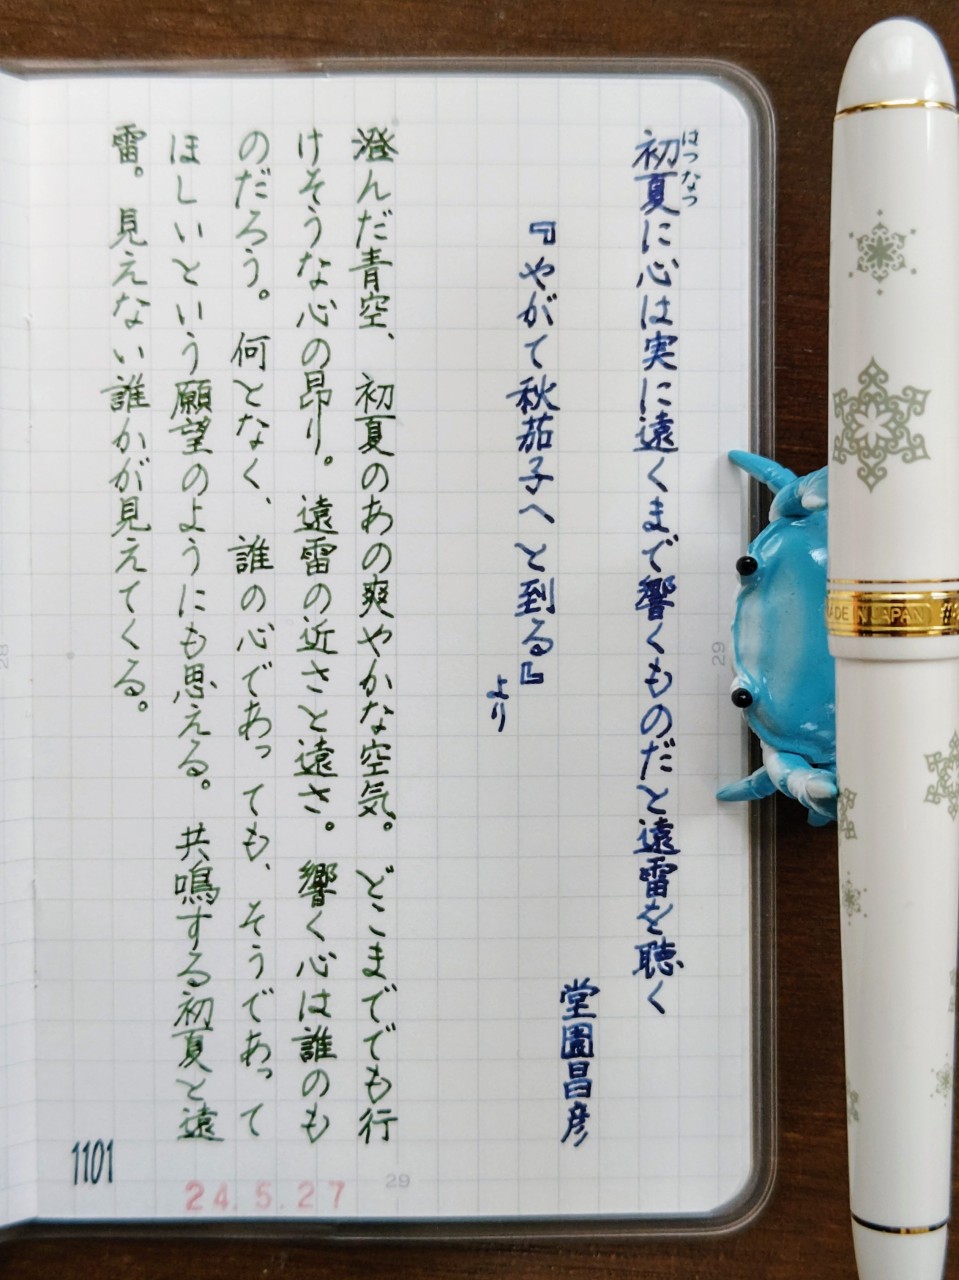 初夏に心は実に遠くまで響くものだと遠雷を聴く
はつなつ
堂園昌彦
『やがて秋茄子へと到る』
より
澄んだ青空、初夏のあの爽やかな空気。どこまででも行
けそうな心の昂り。遠雷の近さと遠さ。響く心は誰のも
のだろう。何となく、誰の心であっても、そうであって
ほしいという願望のようにも思える。共鳴する初夏と遠
雷。見えない誰かが見えてくる。
1101
24.5.27
29
29
28
MADE IN JAPAN